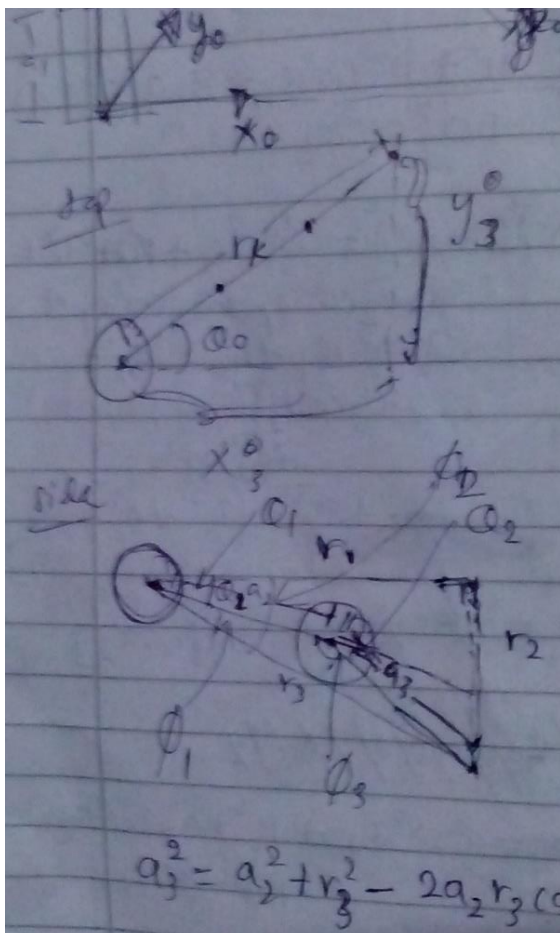 y₀
x₀
top
y₃⁰
θ₀
x₃⁰
side
θ₁
r₁
θ₂
r₂
a₃
r₃
ϕ₁
ϕ₃
a₃² = a₂² + r₃² - 2a₂r₃